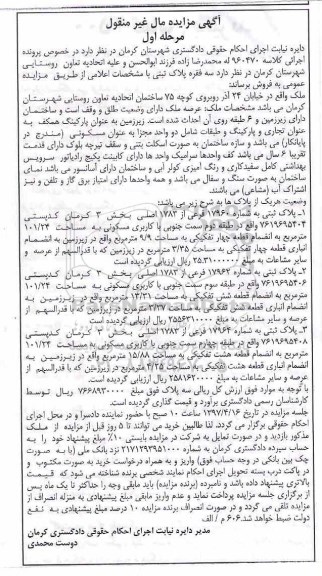 آگهی مزایده مال غیر منقول
مرحله اول
دایره نیابت اجرای احکام حقوقی دادگستری شهرستان کرمان در نظر دارد در خصوص پرونده
اجرائی کلاسه ۹۶۰۴۷۰ له محمدرضا زاده فرزند ابوالحسن و علیه اتحادیه تعاون روستایی
شهرستان کرمان در نظر دارد سه فقره پلاک ثبتی با مشخصات اعلامی از طریق مزایده
عمومی به فروش برساند:
ملک واقع در خیابان ۲۴ آذر روبروی کوچه ۷۵ ساختمان اتحادیه تعاون روستایی شهرستان
کرمان می باشد مشخصات ملک: عرصه ملک دارای وضعیت طلق و وقف است و ساختمان
دارای زیرزمین و ۶ طبقه روی آن احداث شده است. زیرزمین به عنوان پارکینگ همکف به
عنوان تجاری و پارکینگ و طبقات شامل دو واحد مجزا به عنوان مسکونی (مندرج در
پایانکار) می باشد و سازه ساختمان به صورت اسکلت بتنی و سقف تیرچه بلوک دارای قدمت
تقریبا ۶ سال می باشد کف واحدها سرامیک واحد ها دارای کابینت پکیج رادیاتور سرویس
بهداشتی کامل سفیدکاری و رنگ آمیزی کولر آبی و ساختمان دارای آسانسور می باشد نمای
ساختمان به صورت سنگ و سفال می باشد و همه واحدها دارای امتیاز برق گاز و تلفن و نیز
اشتراک آب (مشاعی) می باشند.
وضعیت هریک از پلاک ها به شرح زیر می باشد:
۱_ پلاک ثبتی به شماره ۱۷۹۶۰ فرعی از ۱۷۸۳ اصلی بخش ۳ کرمان کدپستی
۷۶۱۹۶۹۵۳۰۴ واقع در طبقه دوم سمت جنوبی با کاربری مسکونی به مساحت ۱۰۱/۲۴
مترمربع به انضمام قطعه چهار تفکیکی به مساحت ۹/۹ مترمربع واقع در زیرزمین به انضمام
انباری قطعه چهار تفکیکی به مساحت ۳/۳۵ مترمربع در زیرزمین که با قدرالسهم از عرصه و
سایر مشاعات به مبلغ ۲۵۳۱۰۰۰۰۰۰ ریال ارزیابی گردیده است
۲_ پلاک ثبتی به شماره ۱۷۹۶۲ فرعی از ۱۷۸۳ اصلی بخش ۳ کرمان کدپستی
۷۶۱۹۶۹۵۴۰۶ واقع در طبقه سوم سمت جنوبی با کاربری مسکونی به مساحت ۱۰۱/۲۴
مترمربع به انضمام قطعه شش تفکیکی به مساحت ۱۳/۳۱ مترمربع واقع در زیرزمین به
انضمام انباری قطعه شش تفکیکی به مساحت ۲/۲۷ مترمربع در زیرزمین که با قدرالسهم از
عرصه و سایر مشاعات به مبلغ ریال ارزیابی گردیده است
۳_ پلاک ثبتی به شماره ۱۷۹۶۴ فرعی از ۱۷۸۳ اصلی بخش ۳ کرمان کدپستی
۷۶۱۹۶۹۵۴۰۸ واقع در طبقه چهارم سمت جنوبی با کاربری مسکونی به مساحت ۱۰۱/۲۴
مترمربع به انضمام قطعه هشت تفکیکی به مساحت ۱۵/۸۸ مترمربع واقع در زیرزمین به
انضمام انباری قطعه هشت تفکیکی به مساحت ۴/۲۵ مترمربع در زیرزمین که با قدرالسهم از
عرصه و سایر مشاعات به مبلغ ۲۵۸۱۶۲۰۰۰۰ ریال ارزیابی گردیده است.
با توجه به موارد فوق ارزش کل ریالی سه پلاک فوق مبلغ ۷۶۶۸۹۳۰۰۰۰ ریال توسط
کارشناسان رسمی دادگستری برآورد و قیمت گذاری گردیده است.
جلسه مزایده در تاریخ ۱۳۹۷/۴/۱۶ ساعت ۱۰ صبح با حضور نماینده دادسرا و در محل اجرای
احکام حقوقی برگزار می گردد. لذا طالبین خرید می توانند تا ۵ روز قبل از مزایده از ملک
مذکور بازدید و در صورت تمایل به شرکت در مزایده بایستی ۱۰٪ مبلغ پیشنهاد خود را به
حساب سپرده دادگستری کرمان به شماره ۲۱۷۱۲۹۳۹۵۱۰۰۰ نزد بانک ملی (یا به صورت
چک بین بانکی در وجه حساب فوق) واریز و به همراه درخواست خرید به صورت مکتوب و
در پاکت درب بسته تحویل اجرای احکام نمایند شخصی برنده شناخته می شود که قیمت
بالاتری پیشنهاد داده باشد و نامبرده (برنده مزایده) باید مابقی وجه را حداکثر تا یک ماه پس
از برگزاری جلسه مزایده پرداخت نماید و عدم واریز مابقی مبلغ پیشنهادی به منزله انصراف از
مزایده تلقی می گردد و در صورت انصراف برنده مزایده ۱۰ درصد مبلغ پیشنهادی به نفع
دولت ضبط خواهد شد.۶۰۶ م / الف
مدیر دایره نیابت اجرای احکام حقوقی دادگستری کرمان
دوست محمدی